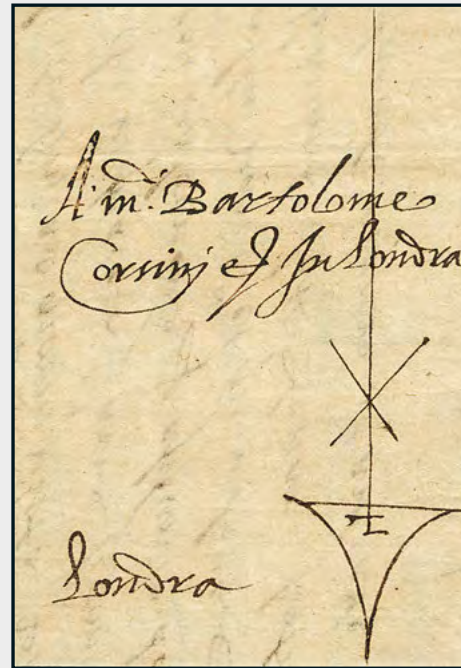 A m. Bartolome
Corsinj e In Londra
Londra